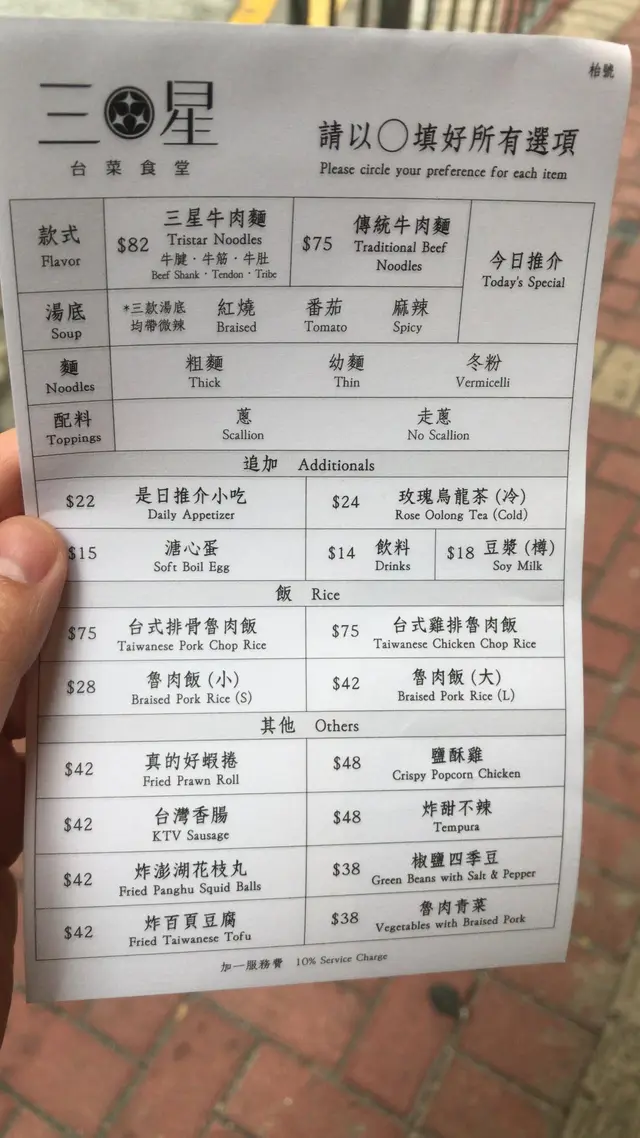 枱號
三星
台菜食堂
請以〇填好所有選項
Please circle your preference for each item
款式
Flavor
$82
三星牛肉麵
Tristar Noodles
牛腱・牛筋・牛肚
Beef Shank・Tendon・Tribe
$75
傳統牛肉麵
Traditional Beef
Noodles
今日推介
Today's Special
湯底
Soup
*三款湯底
均帶微辣
紅燒
Braised
番茄
Tomato
麻辣
Spicy
麵
Noodles
粗麵
Thick
幼麵
Thin
冬粉
Vermicelli
配料
Toppings
蔥
Scallion
走蔥
No Scallion
追加 Additionals
$22
是日推介小吃
Daily Appetizer
$24
玫瑰烏龍茶(冷)
Rose Oolong Tea (Cold)
$15
溏心蛋
Soft Boil Egg
$14
飲料
Drinks
$18
豆漿(樽)
Soy Milk
飯 Rice
$75
台式排骨魯肉飯
Taiwanese Pork Chop Rice
$75
台式雞排魯肉飯
Taiwanese Chicken Chop Rice
$28
魯肉飯(小)
Braised Pork Rice (S)
$42
魯肉飯(大)
Braised Pork Rice (L)
其他 Others
$42
真的好蝦捲
Fried Prawn Roll
$48
鹽酥雞
Crispy Popcorn Chicken
$42
台灣香腸
KTV Sausage
$48
炸甜不辣
Tempura
$42
炸澎湖花枝丸
Fried Panghu Squid Balls
$38
椒鹽四季豆
Green Beans with Salt & Pepper
$42
炸百頁豆腐
Fried Taiwanese Tofu
$38
魯肉青菜
Vegetables with Braised Pork
加一服務費 10% Service Charge